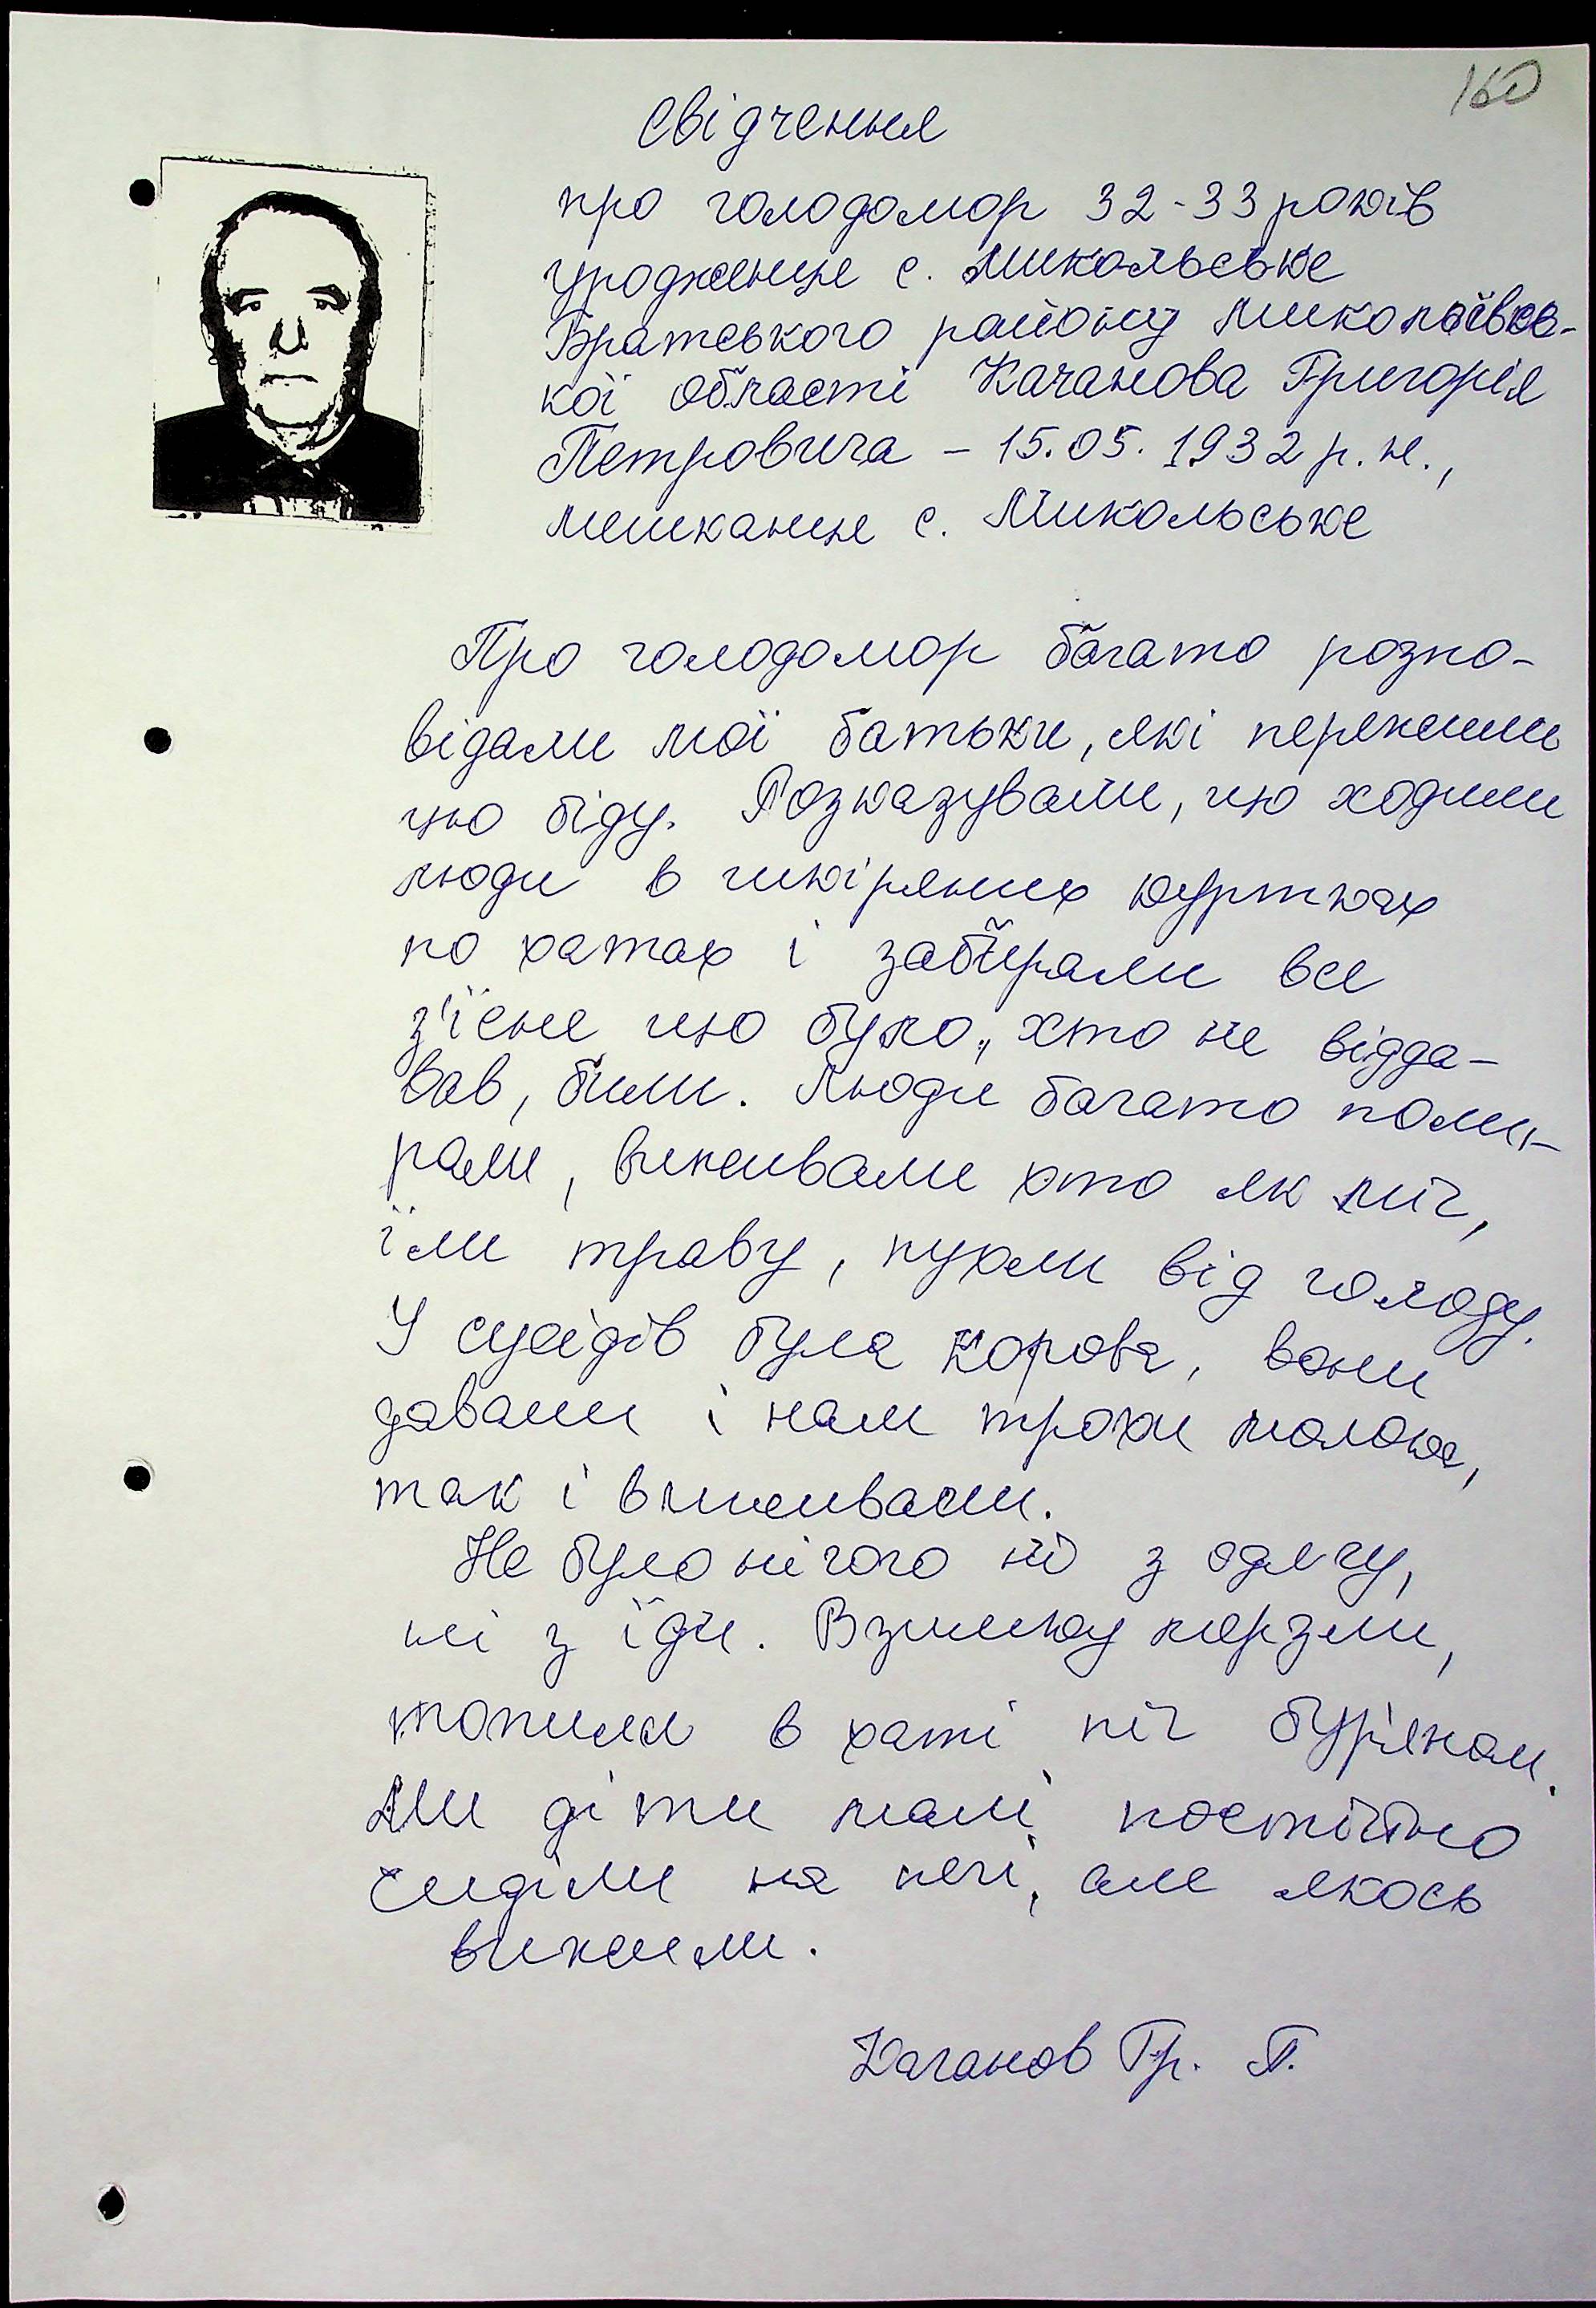 160
Свідчення
про голодомор 32-33 років
уродженця с. Микольське
Братського району Миколаївсь-
кої області Качанова Григорія
Петровича - 15.05.1932 р.н.,
мешканця с. Микольське
Про голодомор багато розпо-
відали мої батьки, які пережили
цю біду. Розказували, що ходили
люди в шкіряних куртках
по хатах і забирали все
з'їсне що було, хто не відда-
вав, били. Люди багато поми-
рали, виживали хто як міг,
їли траву, пухли від голоду.
У сусідів була корова, вони
давали і нам трохи молока,
так і виживали.
Не було нічого ні з одягу,
ні з їди. Взимку мерзли,
топили в хаті піч бур'яном.
Ми діти малі постійно
сиділи на печі, але якось
вижили.
Качанов Гр. П.